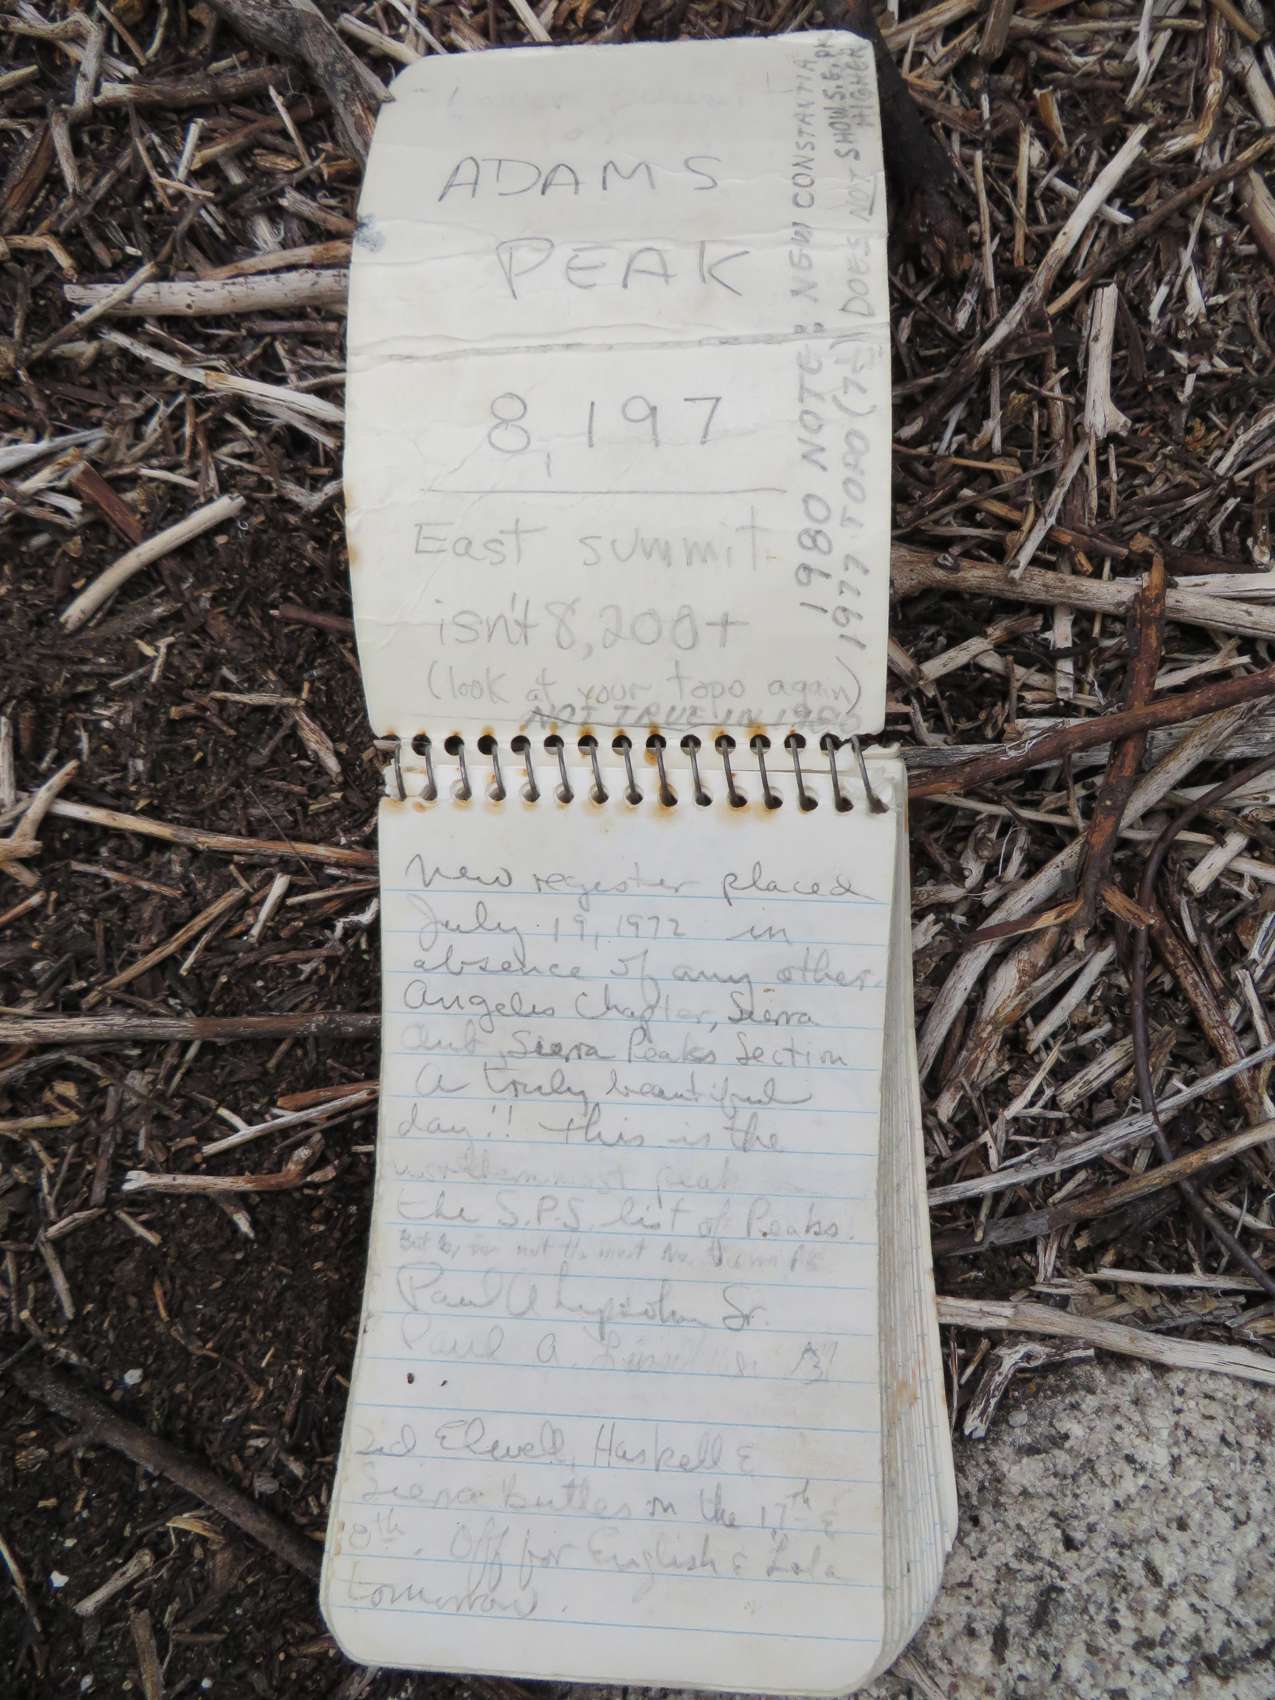 ADAMS
PEAK
8,197
East summit
isn't 8,200+
(look at your topo again)
NOT TRUE IN 1980
1980 NOTE: NEW CONSTANTIA
1977 TOPO (7½) DOES NOT SHOW S.E. PK
HIGHER
New register placed
July 19, 1972 in
absence of any other.
Angeles Chapter, Sierra
Club, Sierra Peaks Section
A truly beautiful
day!! This is the
northernmost peak in
the S.P.S. list of Peaks.
But by far not the most No. Sierra Pk
Paul A Sr.
Paul A.
2d Elwell, Haskell &
Sierra Buttes on the 17th &
18th. Off for English & Lola
tomorrow.